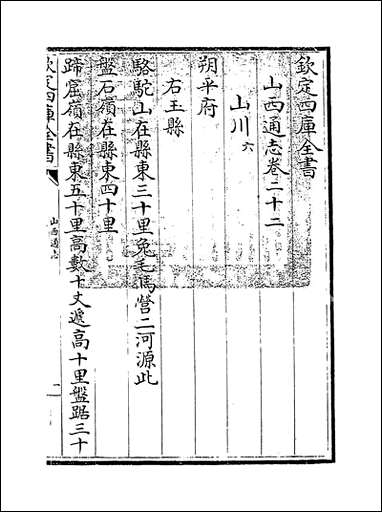 欽定四庫全書
山西通志卷二十二
山川六
朔平府
右玉縣
駱駝山在縣東三十里兔毛馬營二河源此
盤石嶺在縣東四十里
蹄窟嶺在縣東五十里高數十丈遞高十里盤踞三十
欽定四庫全書
山西通志
一